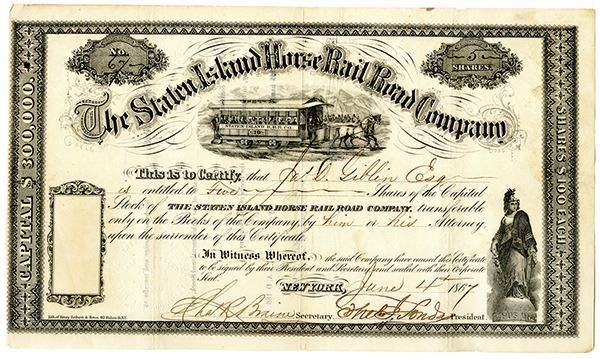 No. 67
5 SHARES.
The Staten Island Horse Rail Road Company
STATEN ISLAND H.R.R. CO.
This is to Certify, that Jno. D. Giblin Esq
is entitled to five Shares of the Capital
Stock of THE STATEN ISLAND HORSE RAIL ROAD COMPANY, transferable
only on the Books of the Company by him or his Attorney
upon the surrender of this Certificate.
In Witness Whereof, the said Company have caused this Certificate
to be signed by their President and Secretary and sealed with their Corporate
Seal.
NEW YORK, June 4th 1867
Secretary.
President.
CAPITAL $300,000.
SHARES $100 EACH.